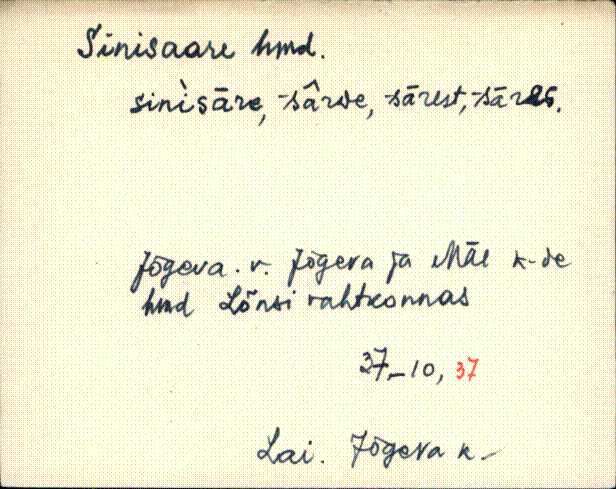 Sinisaare hmd.
sinìsāre, -sârde, -sārest, -sāres.
Jõgeva. v. Jõgeva ja Mäe k-de
hmd Lõnsi rahtkonnas
37_10, 37
Lai. Jõgeva k.-